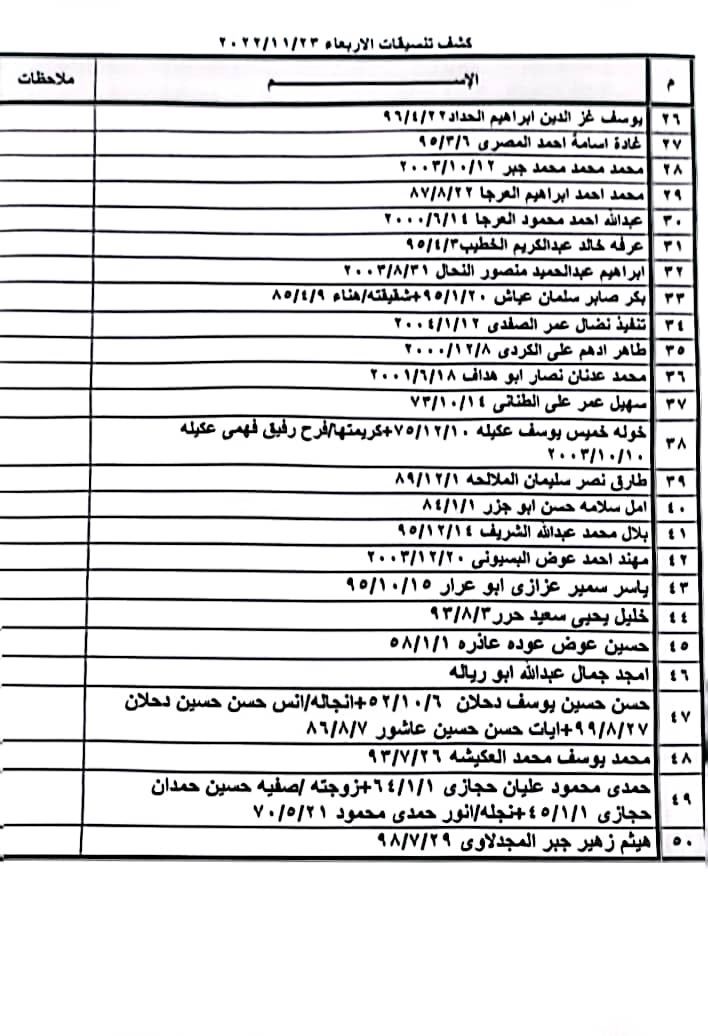 كشف تنسيقات الاربعاء ٢٠٢٢/١١/٢٣
م الاســـــــــــــــــم ملاحظات
٢٦ يوسف عز الدين ابراهيم الحداد٩٦/٤/٢٢
٢٧ غادة اسامة احمد المصرى ٩٥/٣/٦
٢٨ محمد محمد محمد جبر ٢٠٠٣/١٠/١٢
٢٩ محمد احمد ابراهيم العرجا ٨٧/٨/٢٢
٣٠ عبدالله احمد محمود العرجا ٢٠٠٠/٦/١٤
٣١ عرفه خالد عبدالكريم الخطيب٩٥/٤/٣
٣٢ ابراهيم عبدالحميد منصور النحال ٢٠٠٣/٨/٣١
٣٣ بكر صابر سلمان عياش ٩٥/١/٢٠+شقيقته/هناء ٨٥/٤/٩
٣٤ تنفيذ نضال عمر الصفدى ٢٠٠٤/١/١٢
٣٥ طاهر ادهم على الكردى ٢٠٠٠/١٢/٨
٣٦ محمد عدنان نصار ابو هداف ٢٠٠١/٦/١٨
٣٧ سهيل عمر على الطنانى ٧٣/١٠/١٤
٣٨ خوله خميس يوسف عكيله ٧٥/١٢/١٠+كريمتها/فرح رفيق فهمى عكيله
٢٠٠٣/١٠/١٠
٣٩ طارق نصر سليمان الملالحه ٨٩/١٢/١
٤٠ امل سلامه حسن ابو جزر ٨٤/١/١
٤١ بلال محمد عبدالله الشريف ٩٥/١٢/١٤
٤٢ مهند احمد عوض البسيونى ٢٠٠٣/١٢/٢٠
٤٣ ياسر سمير عزازى ابو عرار ٩٥/١٠/١٥
٤٤ خليل يحيى سعيد حرر٩٣/٨/٣
٤٥ حسين عوض عوده عاذره ٥٨/١/١
٤٦ امجد جمال عبدالله ابو رياله
٤٧ حسن حسين يوسف دحلان ٥٢/١٠/٦+انجاله/انس حسن حسين دحلان
٩٩/٨/٢٧+ايات حسن حسين عاشور ٨٦/٨/٧
٤٨ محمد يوسف محمد العكيشه ٩٣/٧/٢٦
٤٩ حمدى محمود عليان حجازى ٦٤/١/١+زوجته /صفيه حسين حمدان
حجازى ٤٥/١/١+نجله/انور حمدى محمود ٧٠/٥/٢١
٥٠ هيثم زهير جبر المجدلاوى ٩٨/٧/٢٩